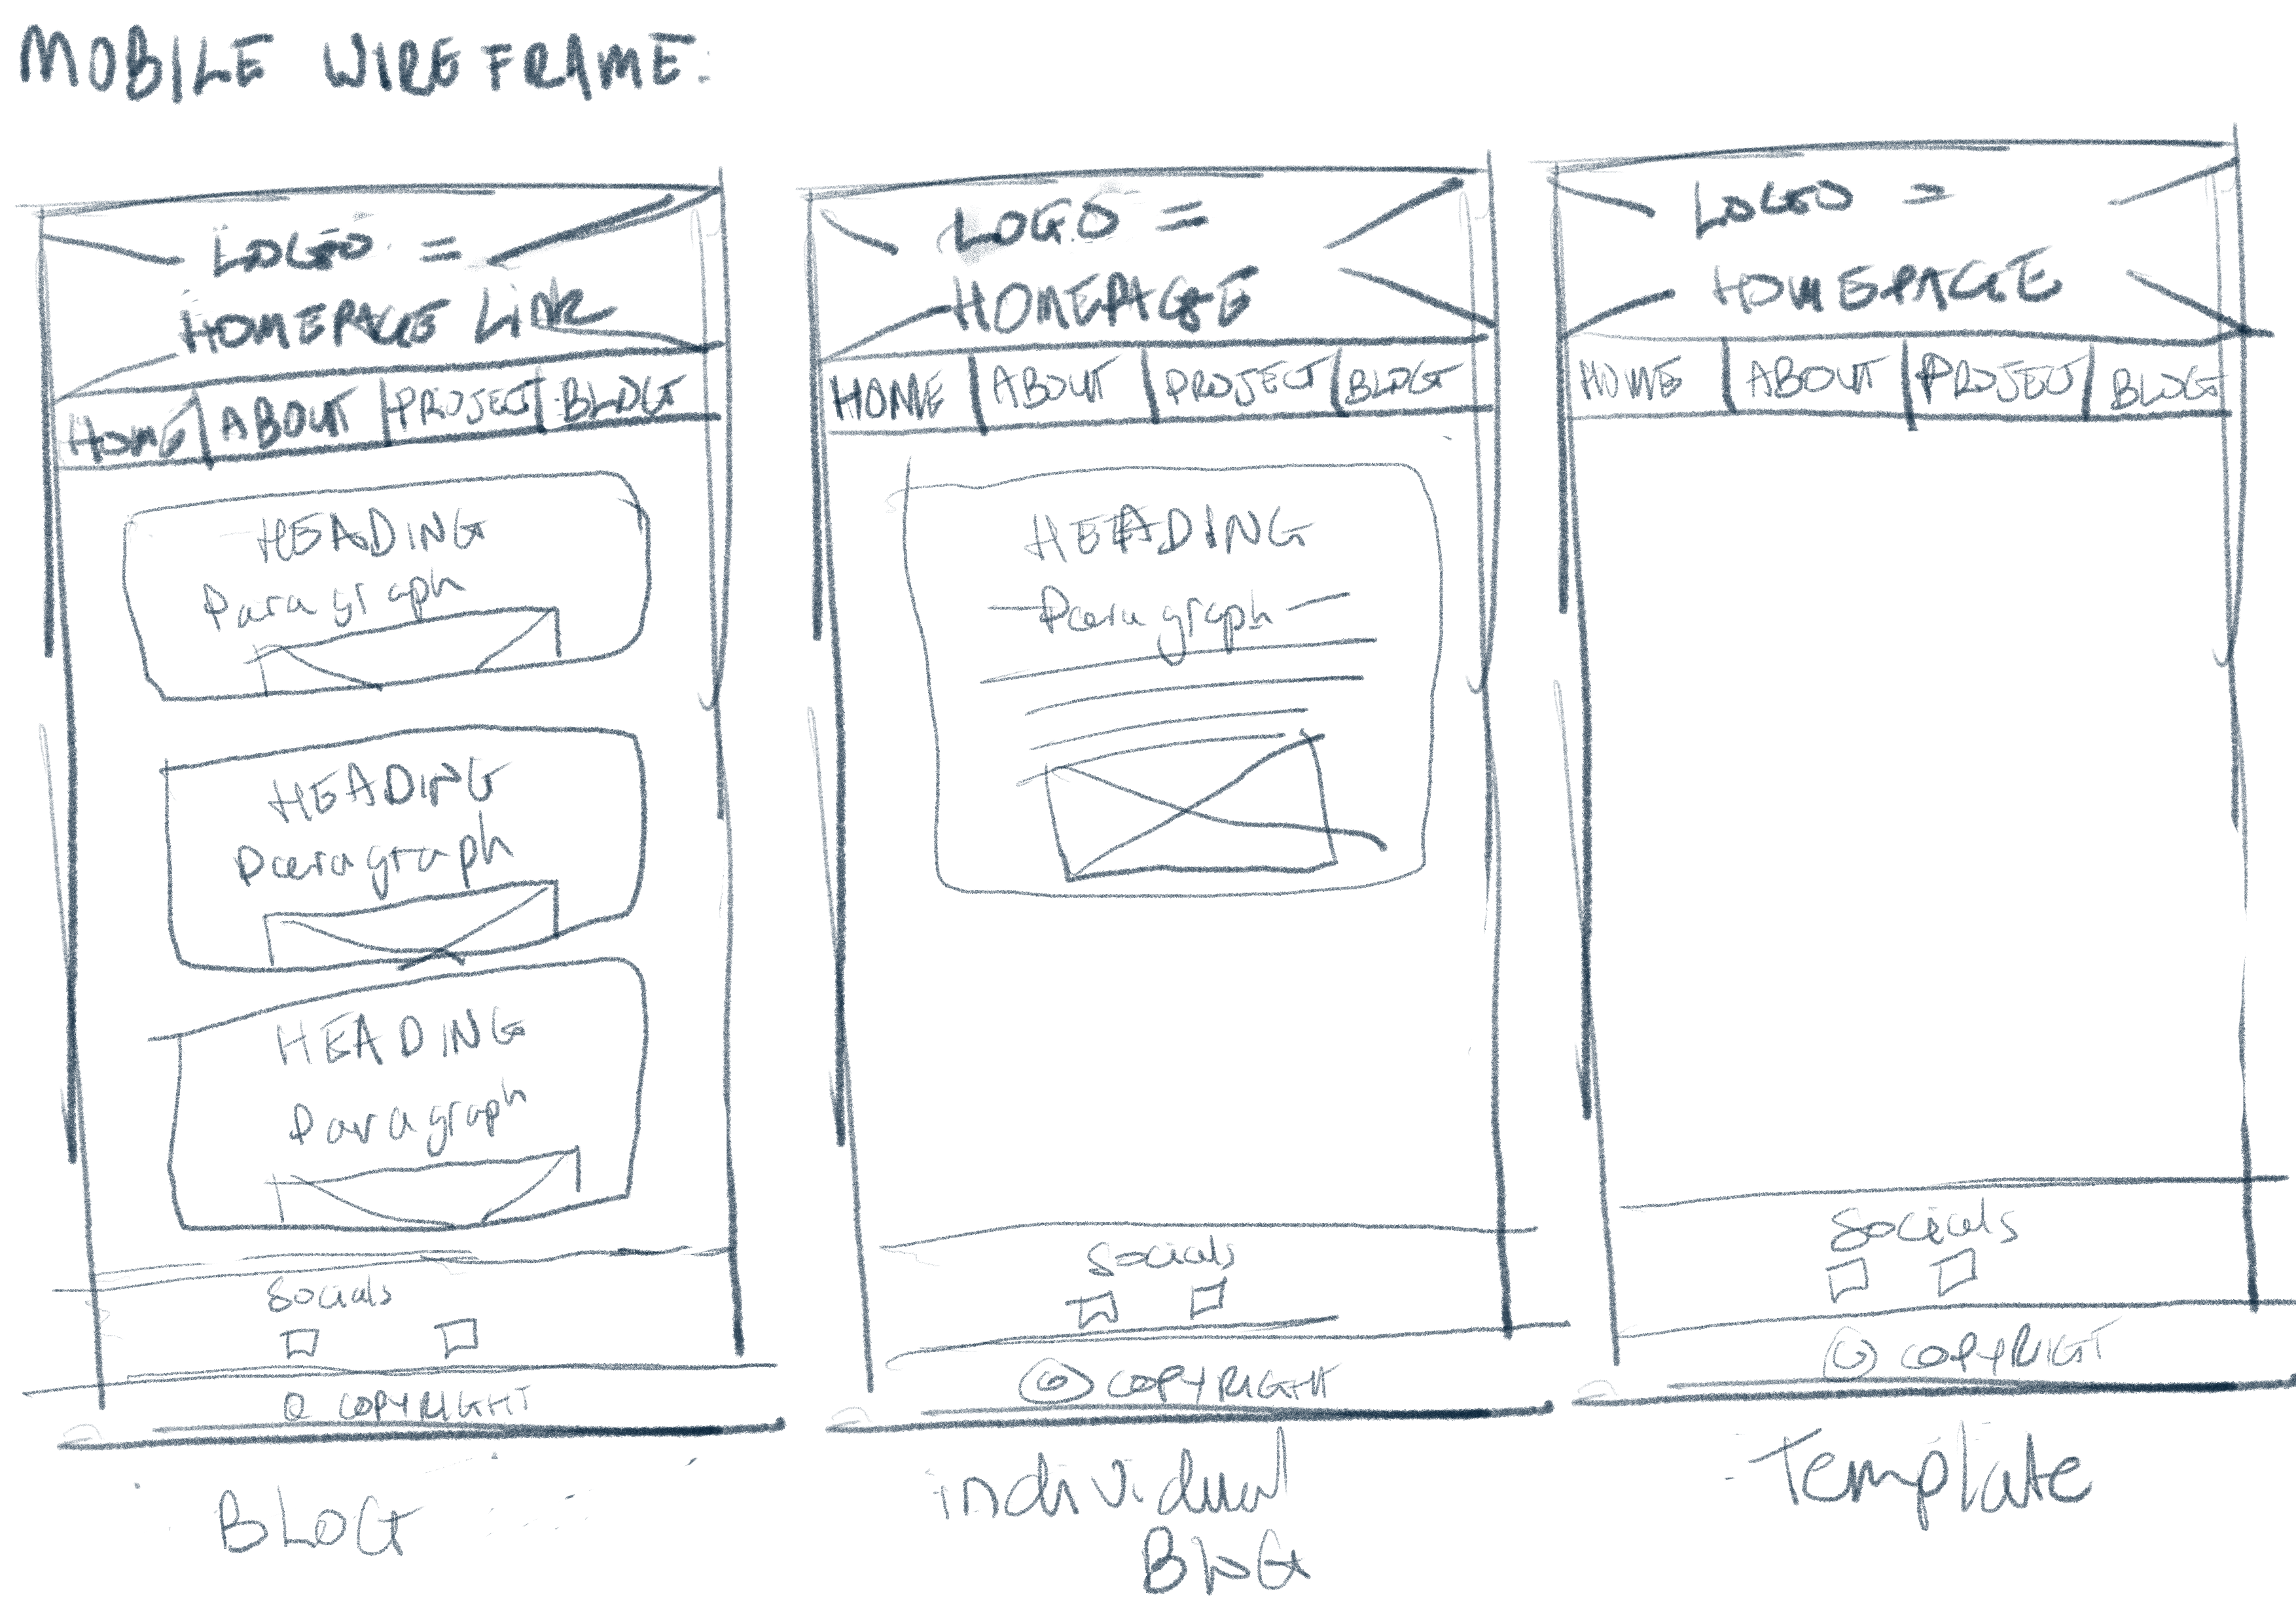 MOBILE WIREFRAME:
LOGO =
HOMEPAGE Link
HOME ABOUT PROJECT BLOG
HEADING
Paragraph
HEADING
Paragraph
HEADING
Paragraph
Socials
© COPYRIGHT
BLOG
LOGO =
HOMEPAGE
HOME ABOUT PROJECT BLOG
HEADING
Paragraph
Socials
© COPYRIGHT
individual
BLOG
LOGO =
HOMEPAGE
HOME ABOUT PROJECT BLOG
Socials
© COPYRIGHT
Template